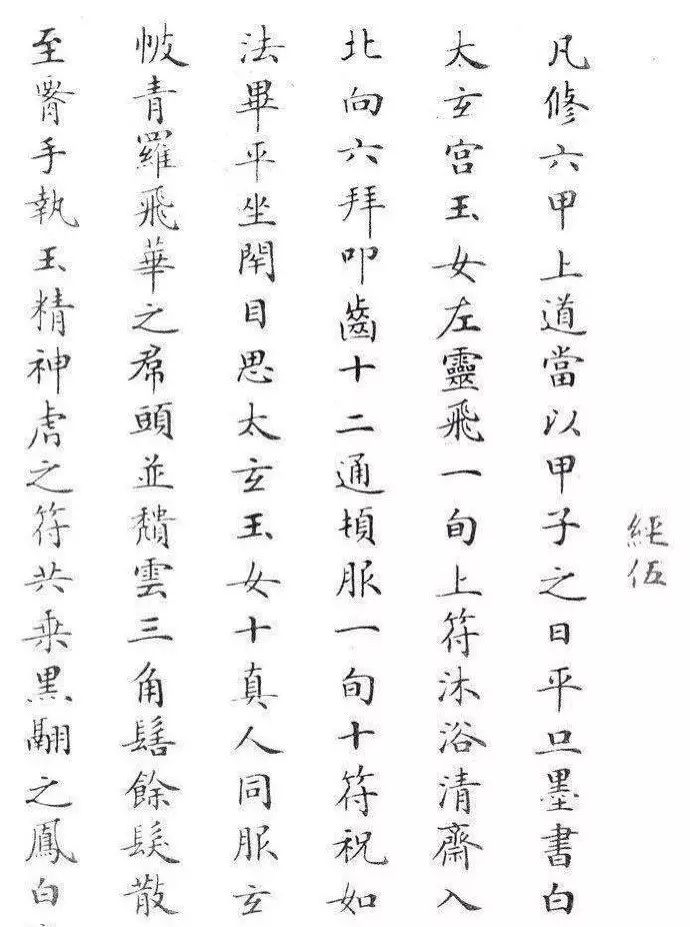 經伍
凡修六甲上道當以甲子之日平旦墨書白
太玄宮玉女左靈飛一旬上符沐浴清齋入
北向六拜叩齒十二通頓服一旬十符祝如
法畢平坐閇目思太玄玉女十真人同服玄
帔青羅飛華之帬頭並頹雲三角髻餘髮散
至胷手執玉精神虎之符共乘黑翮之鳳白